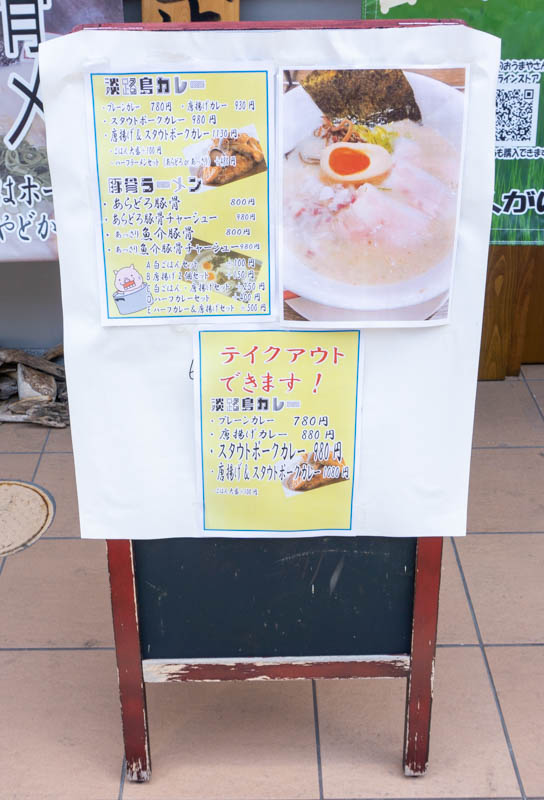 淡路島カレー
・プレーンカレー 780円 ・唐揚げカレー 930円
・スタウトポークカレー 980円
・唐揚げ&スタウトポークカレー 1130円
・ごはん大盛+100円
・ハーフラーメンセット(あらどろかあっさり)+400円
豚骨ラーメン
・あらどろ豚骨 800円
・あらどろ豚骨チャーシュー 980円
・あっさり魚介豚骨 800円
・あっさり魚介豚骨チャーシュー 980円
A 白ごはんセット +100円
B 唐揚げ2個セット +150円
白ごはん・唐揚げセット +250円
D ハーフカレーセット +400円
E ハーフカレー&唐揚げセット +500円
テイクアウト
できます!
淡路島カレー
・プレーンカレー 780円
・唐揚げカレー 880円
・スタウトポークカレー 880円
・唐揚げ&スタウトポークカレー 1080円
ごはん大盛+100円
ラインストア
も購入できます